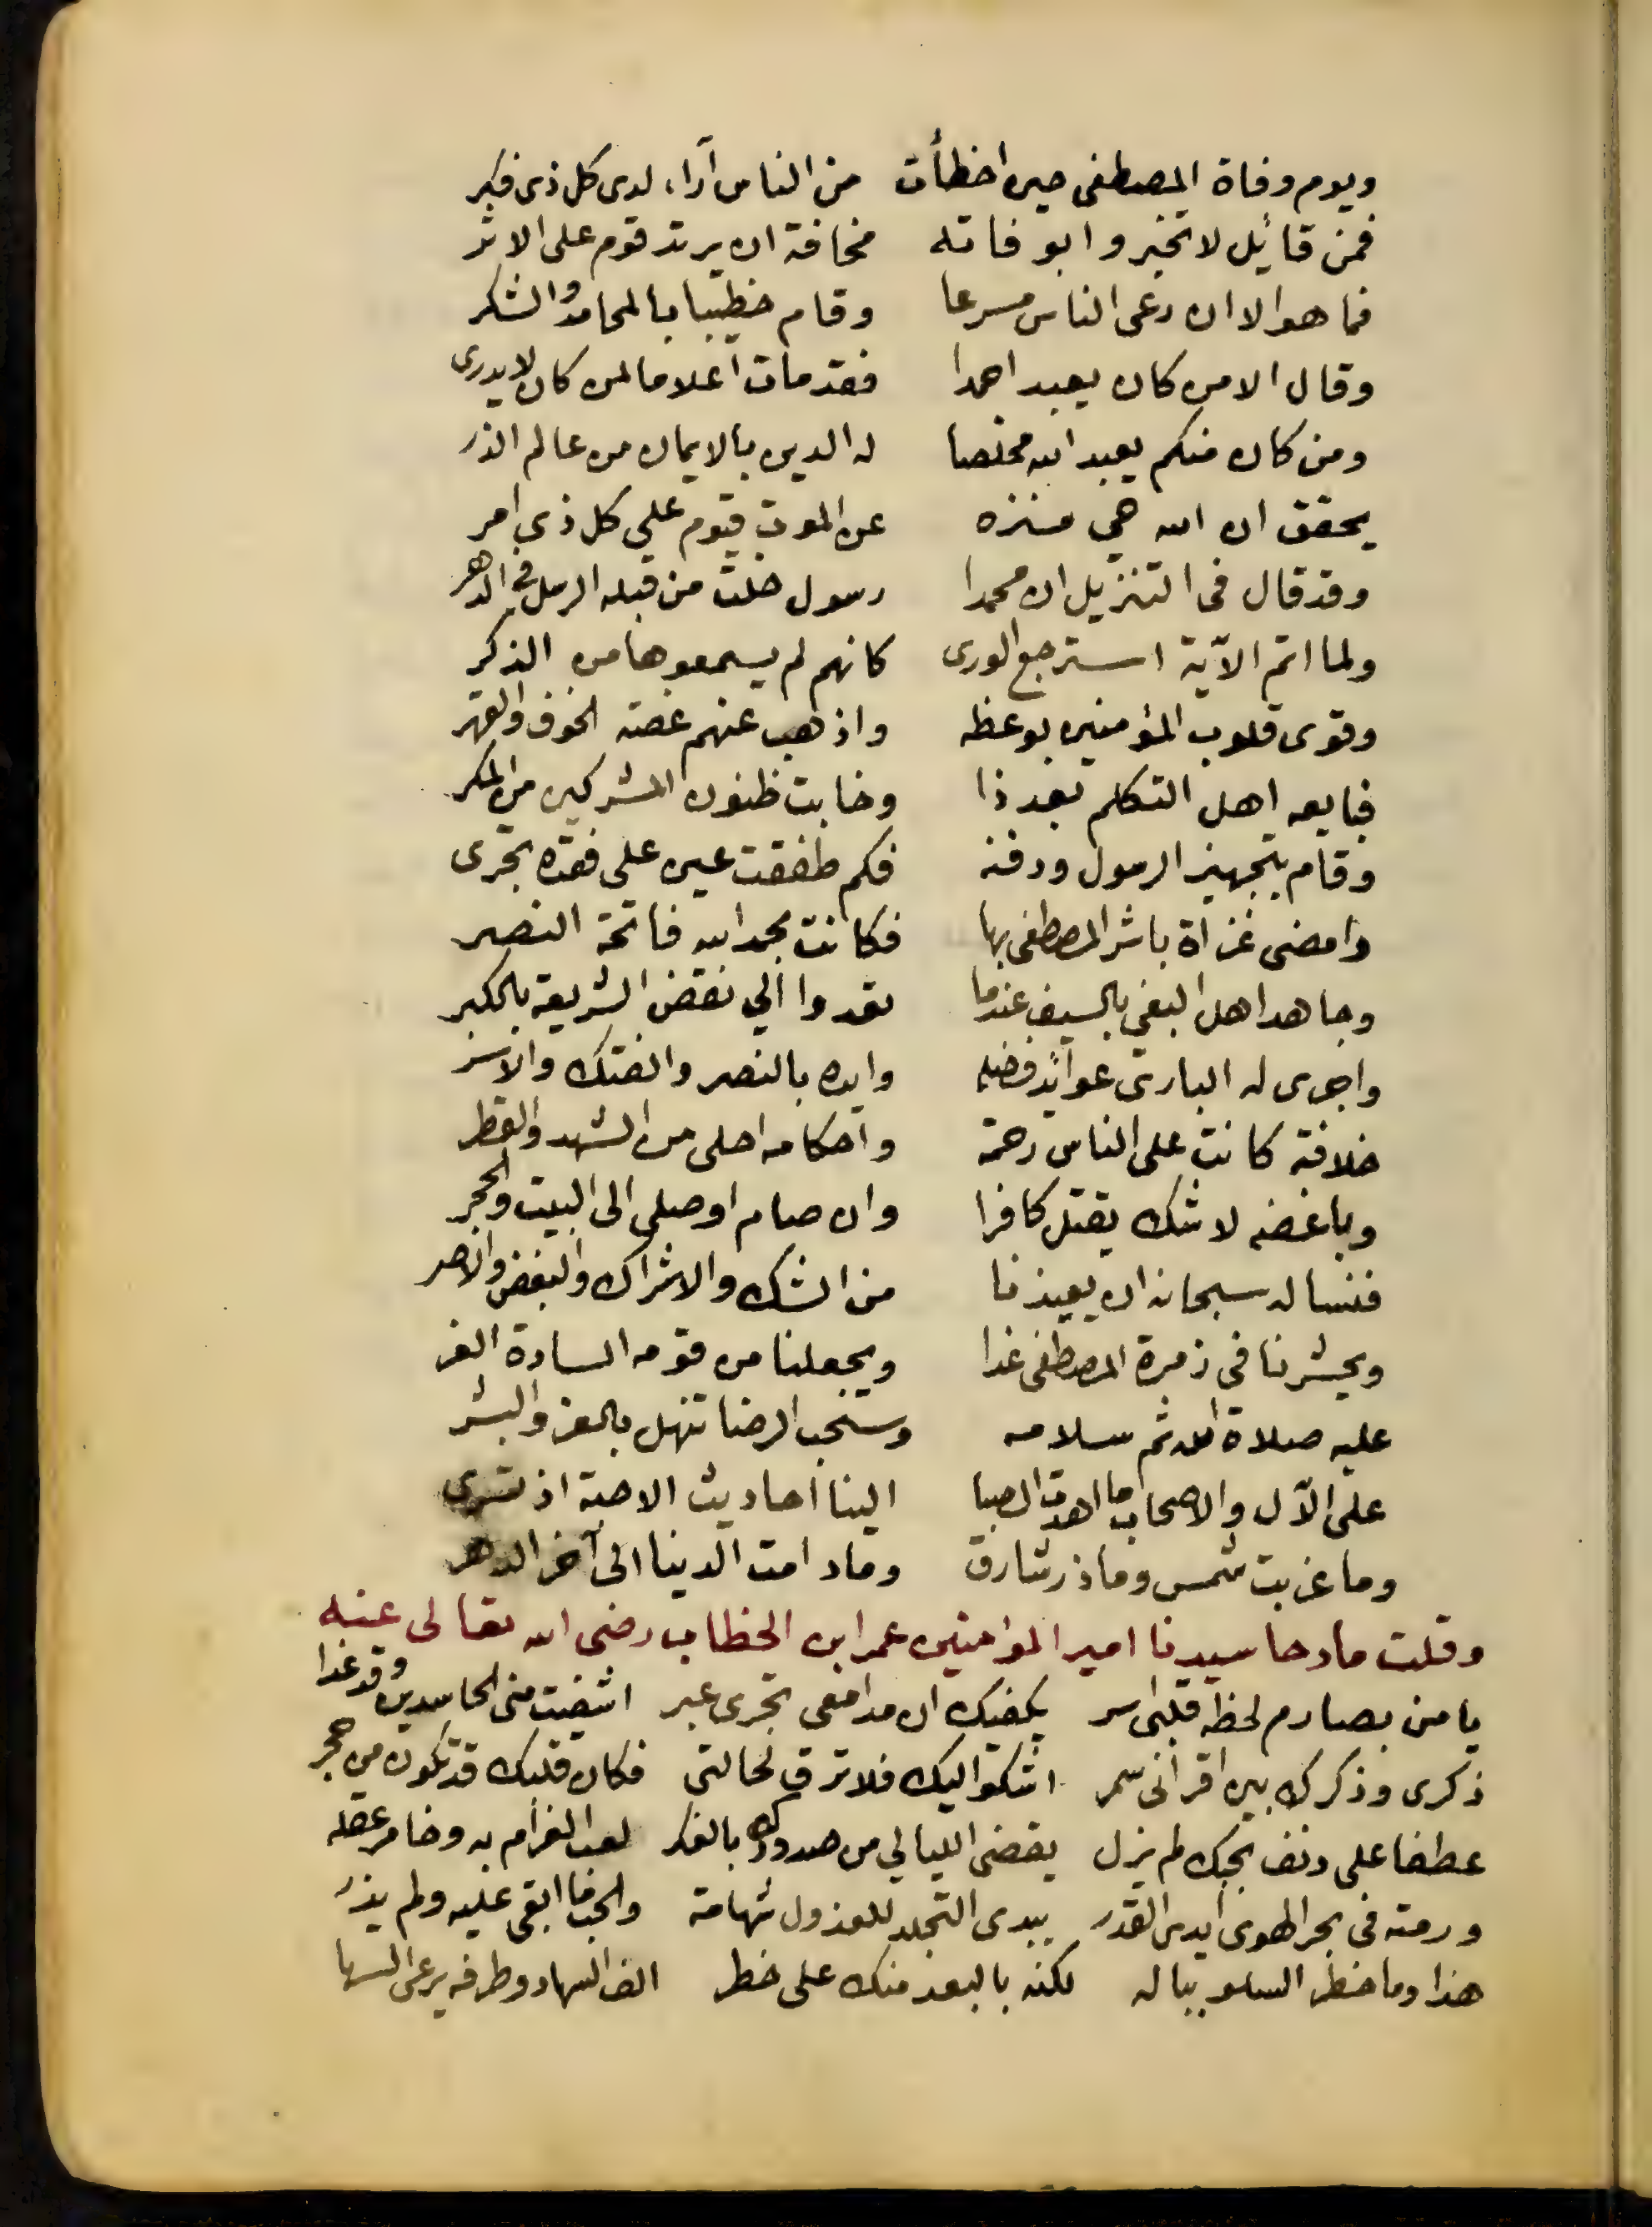 ويوم وفاة المصطفى حين اخطأت من الناس آراء لدى كل ذى فكر
فمن قائيل لا تخبروا بوفاته مخافة ان يرتد قوم على الاثر
فما هو الا ان دعى الناس مسرعا وقام خطيبا بالمحامد والشكر
وقال الا من كان يعبد احمدا فقد مات اعلاما لمن كان لا يدرى
ومن كان منكم يعبد الله مخلصا له الدين بالايمان من عالم الذر
يحقق ان الله حي منزه عن الموت قيوم علي كل ذي امر
وقد قال فى التنزيل ان محمدا رسول خلت من قبله الرسل في الدهر
ولما اتم الآية استرجع الورى كانهم لم يسمعوها من الذكر
وقوى قلوب المؤمنين بوعظه واذهب عنهم غصة الخوف والقهر
فبايعه اهل التكلم بعد ذا وخابت ظنون المشركين من المكر
وقام بتجهيز الرسول ودفنه فكم طفقت عين على فقده تجرى
وامضى غزاة باشر المصطفى بها فكانت بحمد الله فاتحة النصر
وجاهد اهل البغي بالسيف عندما تعدوا الي نقض الشريعة بالكبر
واجرى له البارى عوائد فضله وايده بالنصر والفتك والاسر
خلافة كانت على الناس رحمة واحكامه احلى من الشهد والقطر
وباغضه لا شك يقتل كافرا وان صام او صلى الى البيت والحجر
فنساله سبحانه ان يعيذنا من الشك والاشراك والبغض والاصر
ويحشرنا فى زمرة المصطفى غدا ويجعلنا من قومه السادة الغر
عليه صلاة الله ثم سلامه وسحب الرضا تنهل بالعز والبشر
على الآل والاصحاب ما اهدت الصبا الينا احاديث الاحبة اذ تسرى
وما غربت شمس وما ذر شارق وما دامت الدينا الى آخر الدهر
وقلت مادحا سيدنا امير المؤمنين عمر ابن الخطاب رضى الله تعالى عنه
يا من بصارم لحظه قلبى اسر يكفيك ان مدامعى تجرى عبر اشفيت منى الحاسدين وقد غدا
ذكرى وذكرك بين اقرانى سمر اشكوا اليك فلا ترق لحالتى فكان قلبك قد تكون من حجر
عطفا على دنف بحبك لم يزل يقضى الليالي من صدودك بالفكر لعب الغرام به وخامر عقله
ورمته فى بحر الهوى ايدى القدر يبدى التجلد للعذول شهامة والحب ما ابقى عليه ولم يذر
هذا وما خطر السلو بباله لكنه بالبعد منك على خطر الف السهاد وطرفه يرعى السها